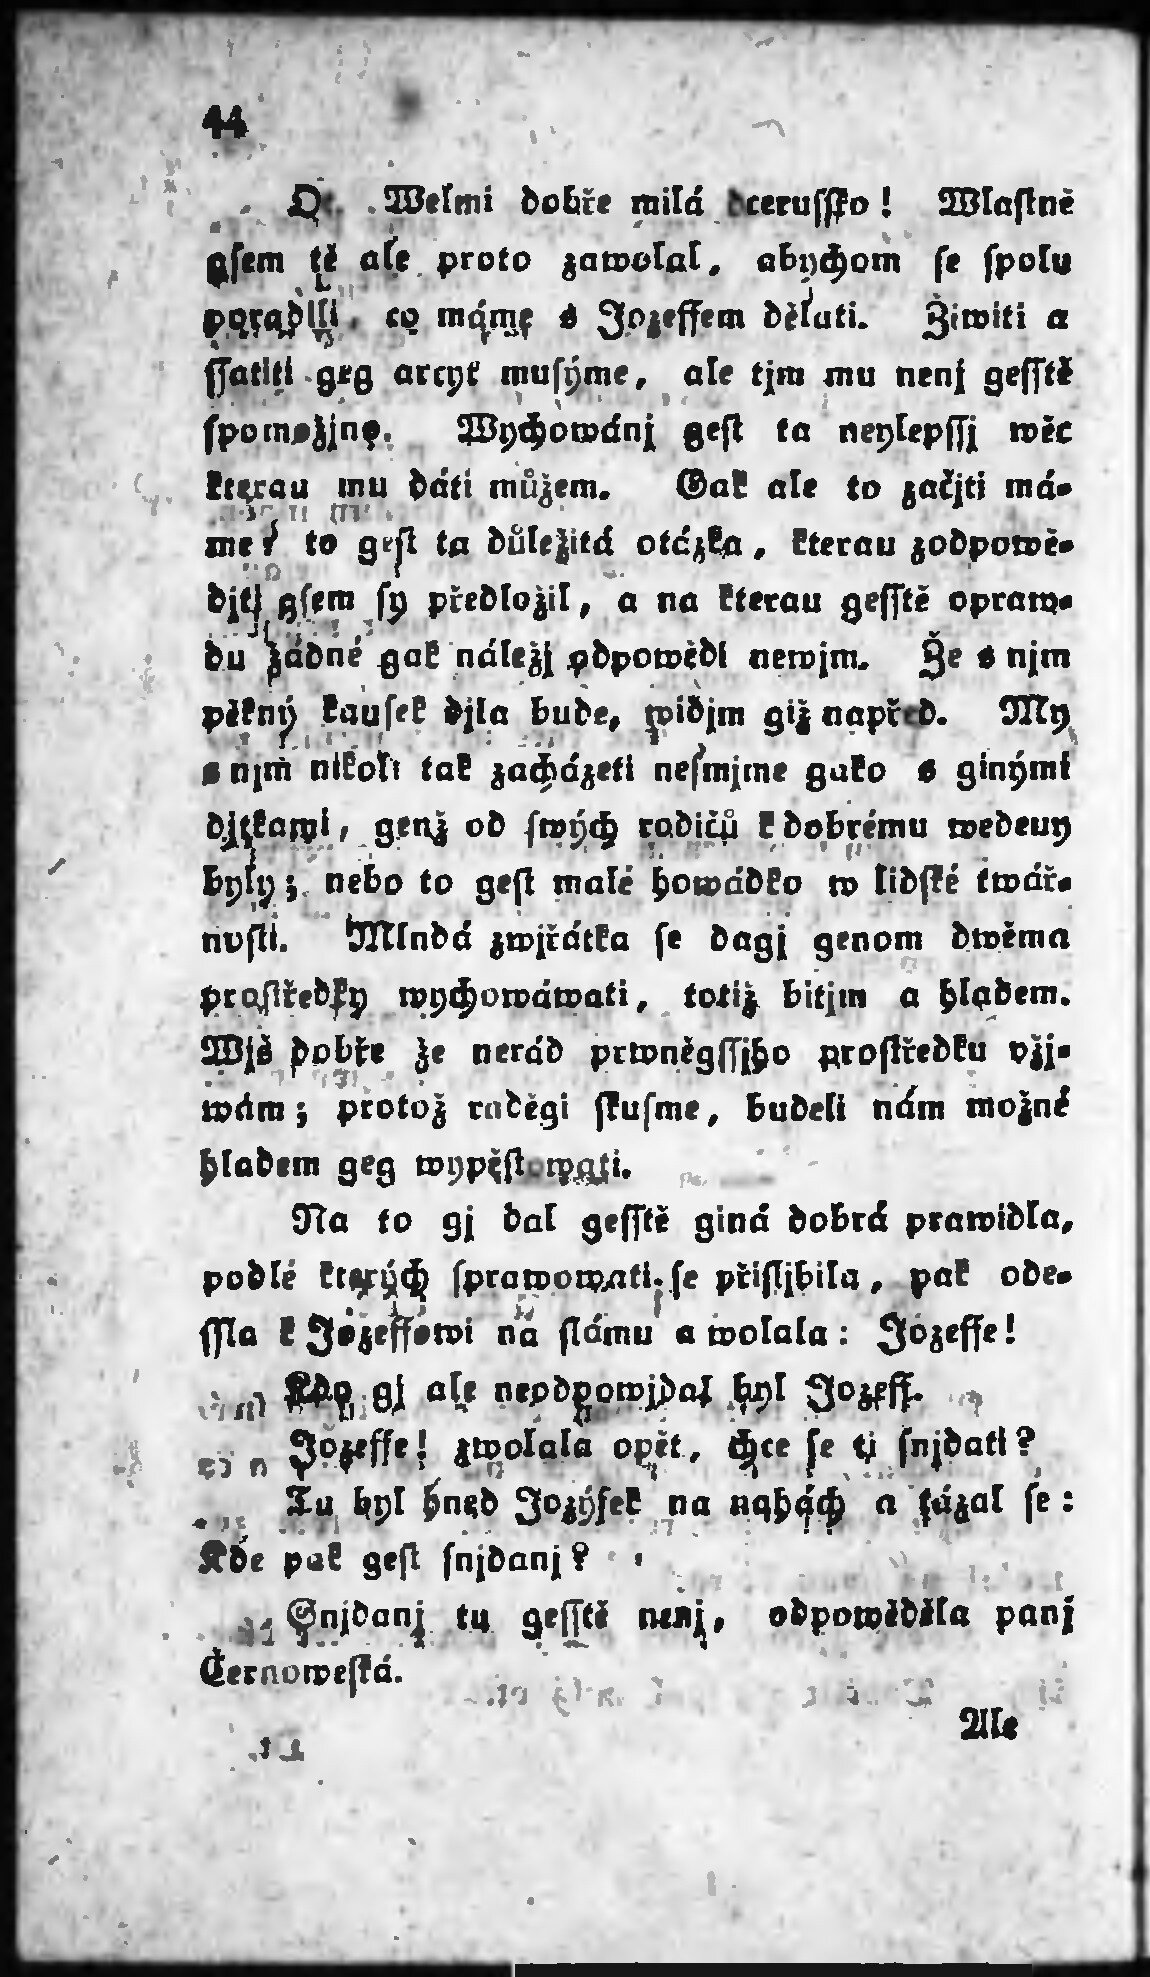 44
O. Welmi dobře milá dceruſſko! Wlaſtně
gſem tě ale proto zawolal, abychom ſe ſpolu
poradili, co máme s Jozeffem dělati. Žiwiti a
ſſatiti geg arcyť muſýme, ale tjm mu nenj geſſtě
ſpomoženo. Wychowánj geſt ta neylepſſj wěc
kterau mu dáti můžem. Gak ale to začjti má-
me? to geſt ta důležitá otázka, kterau zodpowě-
djti gſem ſy předložil, a na kterau geſſtě opraw-
du žádné gak náležj odpowědi newjm. Že s njm
pěkný kauſek djla bude, widjm giž napřed. My
s njm nikoli tak zacházeti neſmjme gako s ginými
djtkami, genž od ſwých rodičů k dobrému wedeny
byly; nebo to geſt malé howádko w lidſké twář-
noſti. Mladá zwjřátka ſe dagj genom dwěma
proſtředky wychowáwati, totiž bitjm a hladem.
Wjš dobře že nerád prwněgſſjho proſtředku vžj-
wám; protož raděgi ſkuſme, budeli nám možné
hladem geg wypěſtowati.
Na to gj dal geſſtě giná dobrá prawidla,
podlé kterých ſprawowati ſe přiſljbila, pak ode-
ſſla k Jozeffowi na ſlámu a wolala: Jozeffe!
Kdo gj ale neodpowjdal byl Jozeff.
Jozeffe! zwolala opět, chce ſe ti ſnjdati?
Tu byl hned Jozýfek na nohách a tázal ſe:
Kde pak geſt ſnjdanj?
Snjdanj tu geſſtě nenj, odpowěděla panj
Černoweſká.
Ale